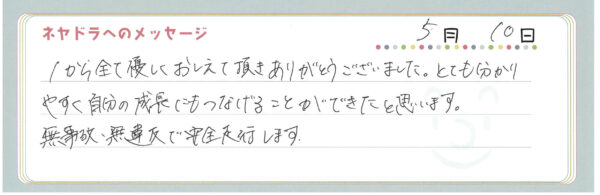 ネヤドラへのメッセージ
5月 10日
1から全て優しくおしえて頂きありがとうございました。とても分かり
やすく自分の成長にもつなげることができたと思います。
無事故、無違反で安全走行します.